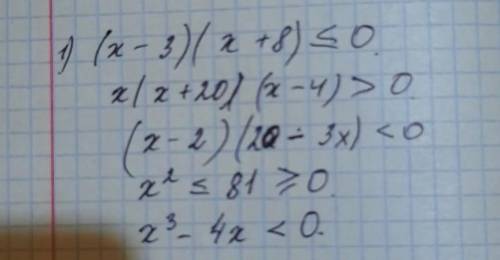 1) (x - 3)(x + 8) ≤ 0.
x(x+20)(x-4) > 0
(x-2)(20-3x) < 0
x² ≤ 81 ≥ 0.
x³ - 4x < 0.